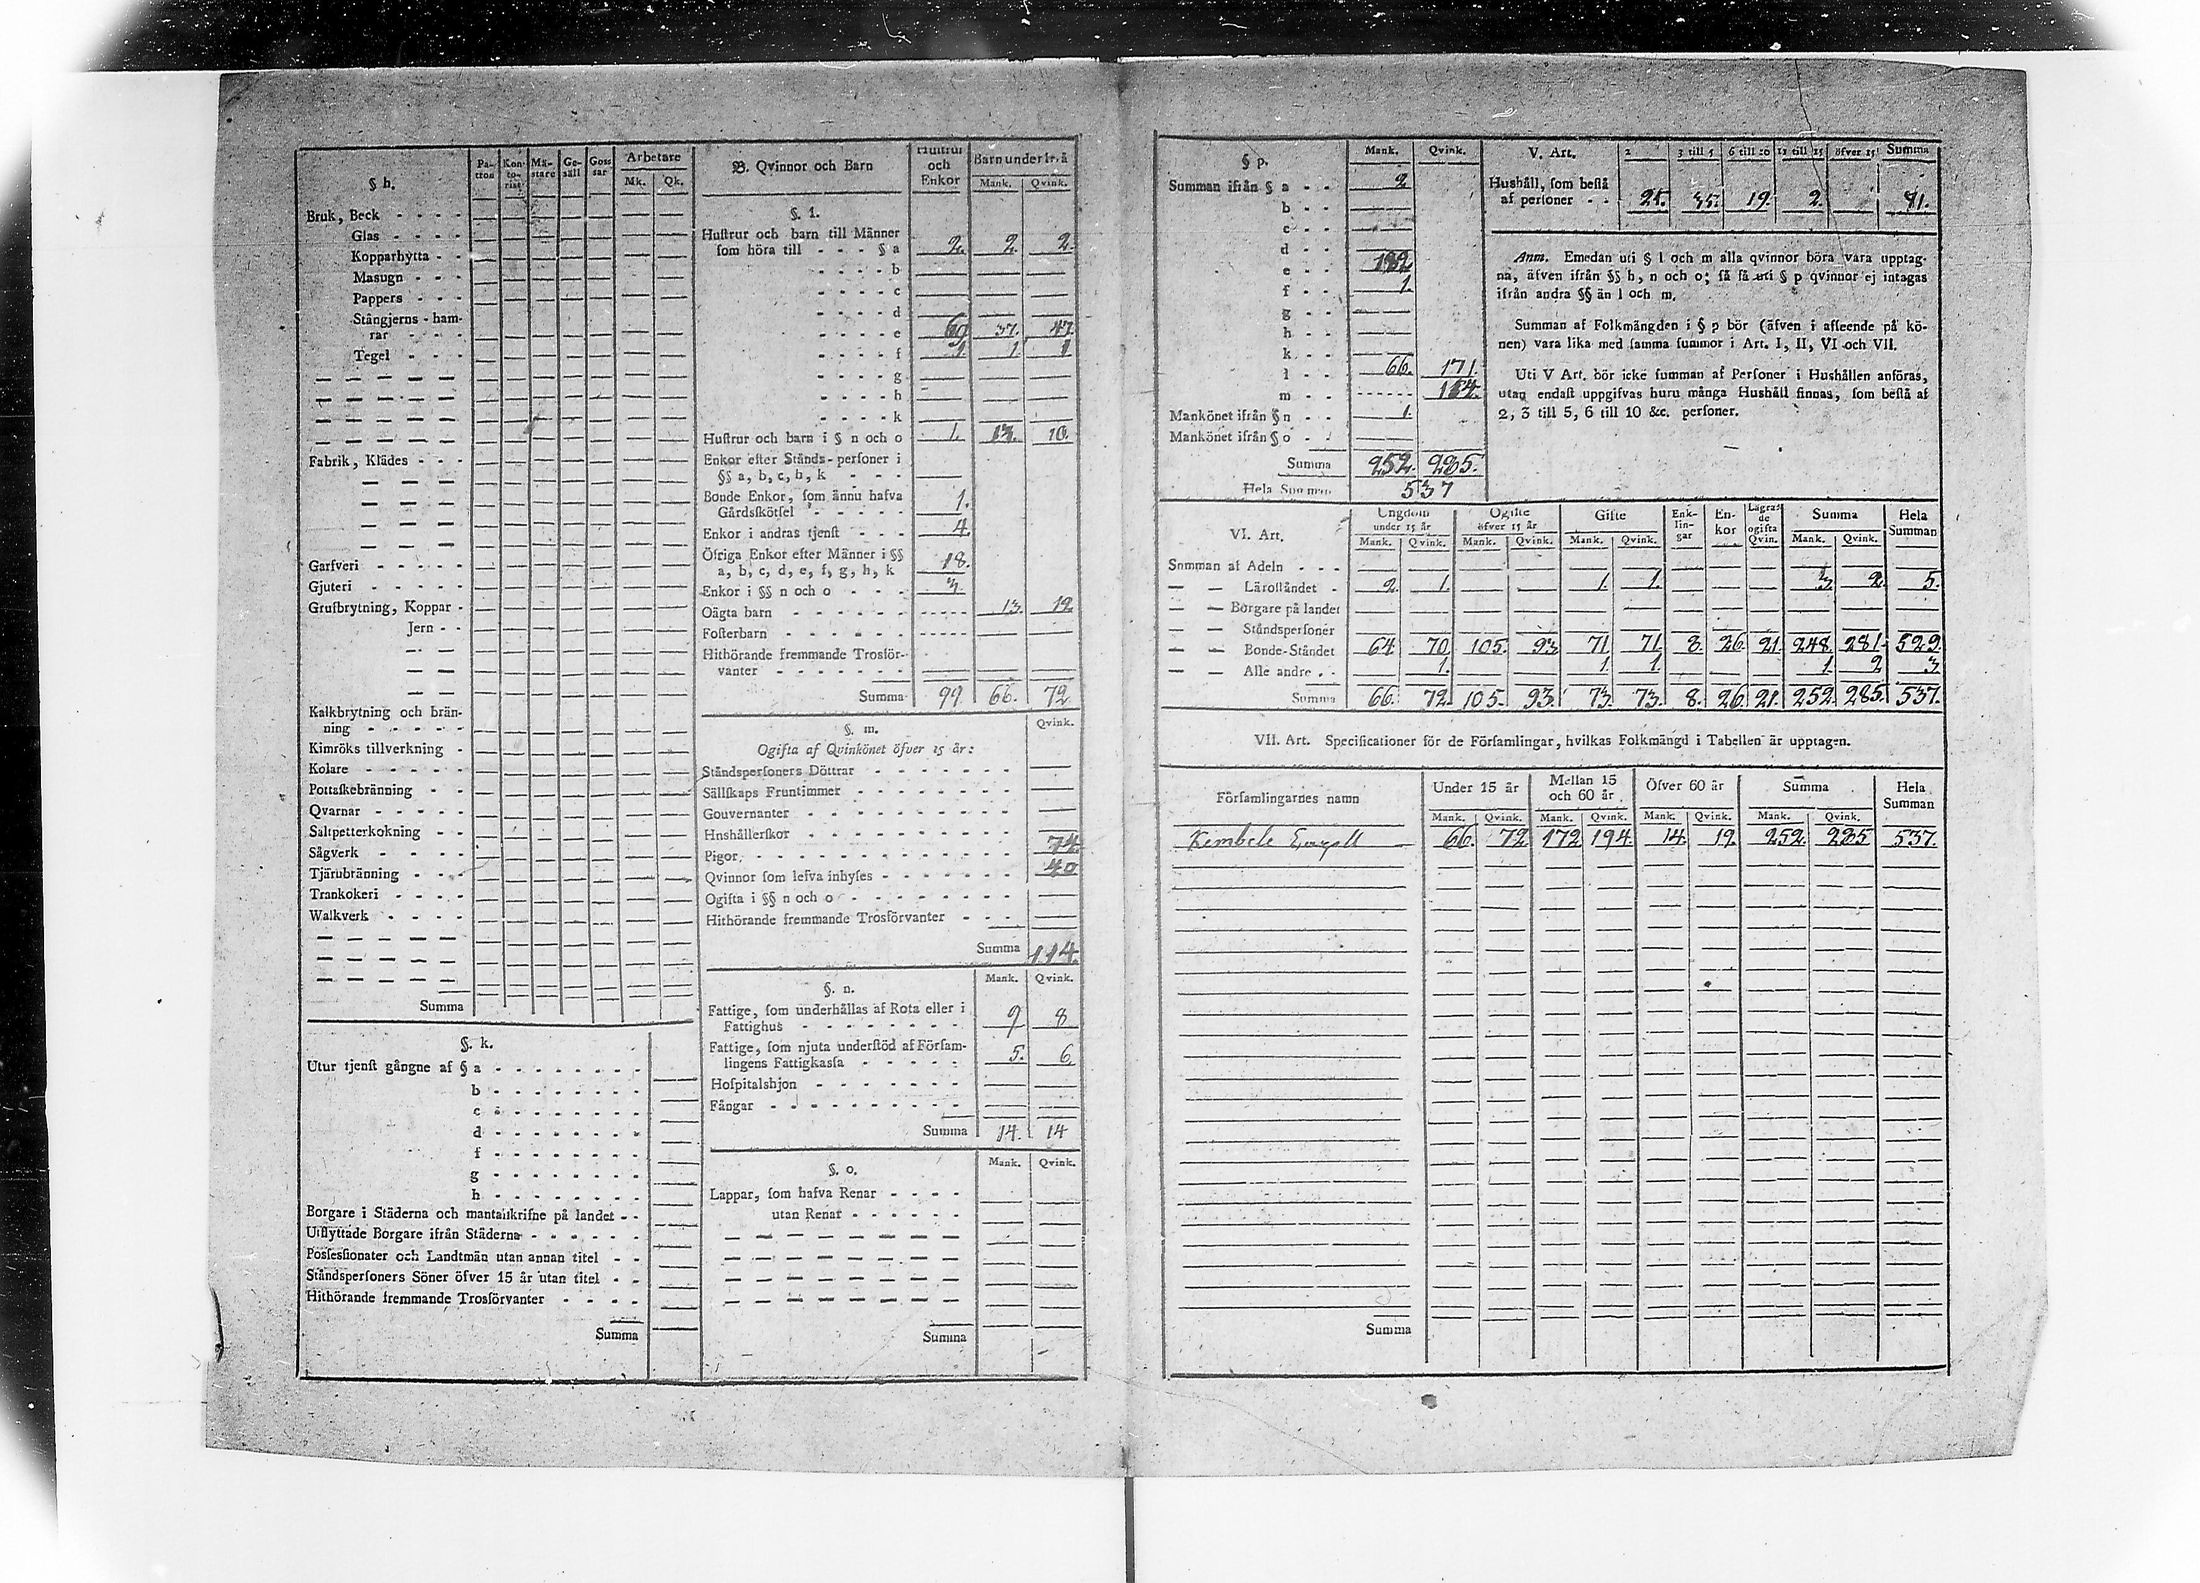 § h.
Pa-
tron
Kon-
to-
rist
Mä-
stare
Ge-
säll
Goss
sar
Arbetare
Mk. Qk.
Bruk, Beck - - - -
Glas - - - -
Kopparhytta - -
Masugn - - -
Pappers - - -
Stångjerns - ham-
rar - - -
Tegel - - -
Fabrik, Klädes - - -
Garfveri - - - - -
Gjuteri - - - - - -
Grufbrytning, Koppar -
Jern - -
Kalkbrytning och brän-
ning - - - - -
Kimröks tillverkning -
Kolare - - - - -
Pottaſkebränning - -
Qvarnar - - - - -
Saltpetterkokning - -
Sågverk - - - - -
Tjärubränning - - -
Trankokeri - - - -
Walkverk - - - -
Summa
§. k.
Utur tjenſt gångne af § a - - - - - - - -
b - - - - - - - -
c - - - - - - - -
d - - - - - - - -
f - - - - - - - -
g - - - - - - - -
h - - - - - - - -
Borgare i Städerna och mantalſkrifne på landet - -
Utflyttade Borgare ifrån Städerna - - - - - -
Posſesſionater och Landtmän utan annan titel - -
Ståndsperſoners Söner öfver 15 år utan titel - -
Hithörande fremmande Trosförvanter - - - -
Summa
B. Qvinnor och Barn
Huſtrur
och
Enkor
Barn under 15 å
Mank. Qvink.
§. l.
Huſtrur och barn till Männer
ſom höra till - - - § a 2. 2. 2.
- - - - b
- - - - c
- - - - d
- - - - e 69 37. 47.
- - - - f 1. 1. 1
- - - - g
- - - - h
- - - - k
Huſtrur och barn i § n och o 1. 13. 10.
Enkor efter Stånds-perſoner i
§§ a, b, c, h, k - - -
Bonde Enkor, ſom ännu hafva
Gårdsſkötſel - - - - - 1.
Enkor i andras tjenſt - - - 4.
Öfriga Enkor efter Männer i §§
a, b, c, d, e, f, g, h, k 18.
Enkor i §§ n och o - - - - 3.
Oägta barn - - - - - - 13. 12
Foſterbarn - - - - - -
Hithörande fremmande Trosför-
vanter - - - - - -
Summa 99 66. 72
§. m.
Qvink.
Ogifta af Qvinkönet öfver 15 år:
Ståndsperſoners Döttrar - - - - - - -
Sällſkaps Fruntimmer - - - - - - - -
Gouvernanter - - - - - - - - - -
Hushållerſkor - - - - - - - - - -
Pigor - - - - - - - - - - - - 74.
Qvinnor ſom lefva inhyſes - - - - - - - 40
Ogifta i §§ n och o - - - - - - - -
Hithörande fremmande Trosförvanter - - -
Summa 114.
Mank. Qvink.
§. n.
Fattige, ſom underhållas af Rota eller i
Fattighus - - - - - - - - 9 8
Fattige, ſom njuta underſtöd af Förſam-
lingens Fattigkaſſa - - - - - 5. 6
Hoſpitalshjon - - - - - - -
Fångar - - - - - - - - - -
Summa 14. 14
Mank. Qvink.
§. o.
Lappar, ſom hafva Renar - - - -
utan Renar - - - - - -
Summa
§ p.
Mank. Qvink.
Summan ifrån § a - - 2
b - -
c - -
d - -
e - - 182
f - - 1.
g - -
h - -
k - -
l - - 66. 171.
m - - 114.
Mankönet ifrån § n - - 1.
Mankönet ifrån § o - -
Summa 252. 285.
Hela Summan 537
V. Art. 2 3 till 5 6 till 10 11 till 15 öfver 15 Summa
Huſhåll, ſom beſtå
af perſoner - - 25. 35. 19. 2. 81.
Anm. Emedan uti § l och m alla qvinnor böra vara upptag-
na, äfven ifrån §§ h, n och o; ſå få uti § p qvinnor ej intagas
ifrån andra §§ än l och m.
Summan af Folkmängden i § p bör (äfven i afſeende på kö-
nen) vara lika med ſamma ſummor i Art. I, II, VI och VII.
Uti V Art. bör icke ſumman af Perſoner i Hushållen anföras,
utan endaſt uppgifvas huru många Hushåll finnas, ſom beſtå af
2, 3 till 5, 6 till 10 &c. perſoner.
VI. Art.
Ungdom
under 15 år
Ogifte
öfver 15 år
Gifte
Enk-
lin-
gar
En-
kor
Lägras
de
ogifta
Qvin.
Summa
Hela
Summan
Mank. Qvink. Mank. Qvink. Mank. Qvink. Mank. Qvink.
Summan af Adeln - - -
— — Läroſtåndet - 2. 1. 1. 1. 3. 2. 5.
— — Borgare på landet
— — Ståndsperſoner
— — Bonde-Ståndet 64. 70. 105. 93 71 71. 8. 26. 21. 248. 281. 529.
— — Alle andre - - 1. 1. 1. 1. 2 3.
Summa 66. 72. 105. 93. 73. 73. 8. 26. 21. 252. 285. 537.
VII. Art. Specificationer för de Förſamlingar, hvilkas Folkmängd i Tabellen är upptagen.
Förſamlingarnes namn
Under 15 år
Mellan 15
och 60 år
Öfver 60 år
Summa
Hela
Summan
Mank. Qvink. Mank. Qvink. Mank. Qvink. Mank. Qvink.
66. 72 172 194. 14. 19. 252. 285 537.
Summa